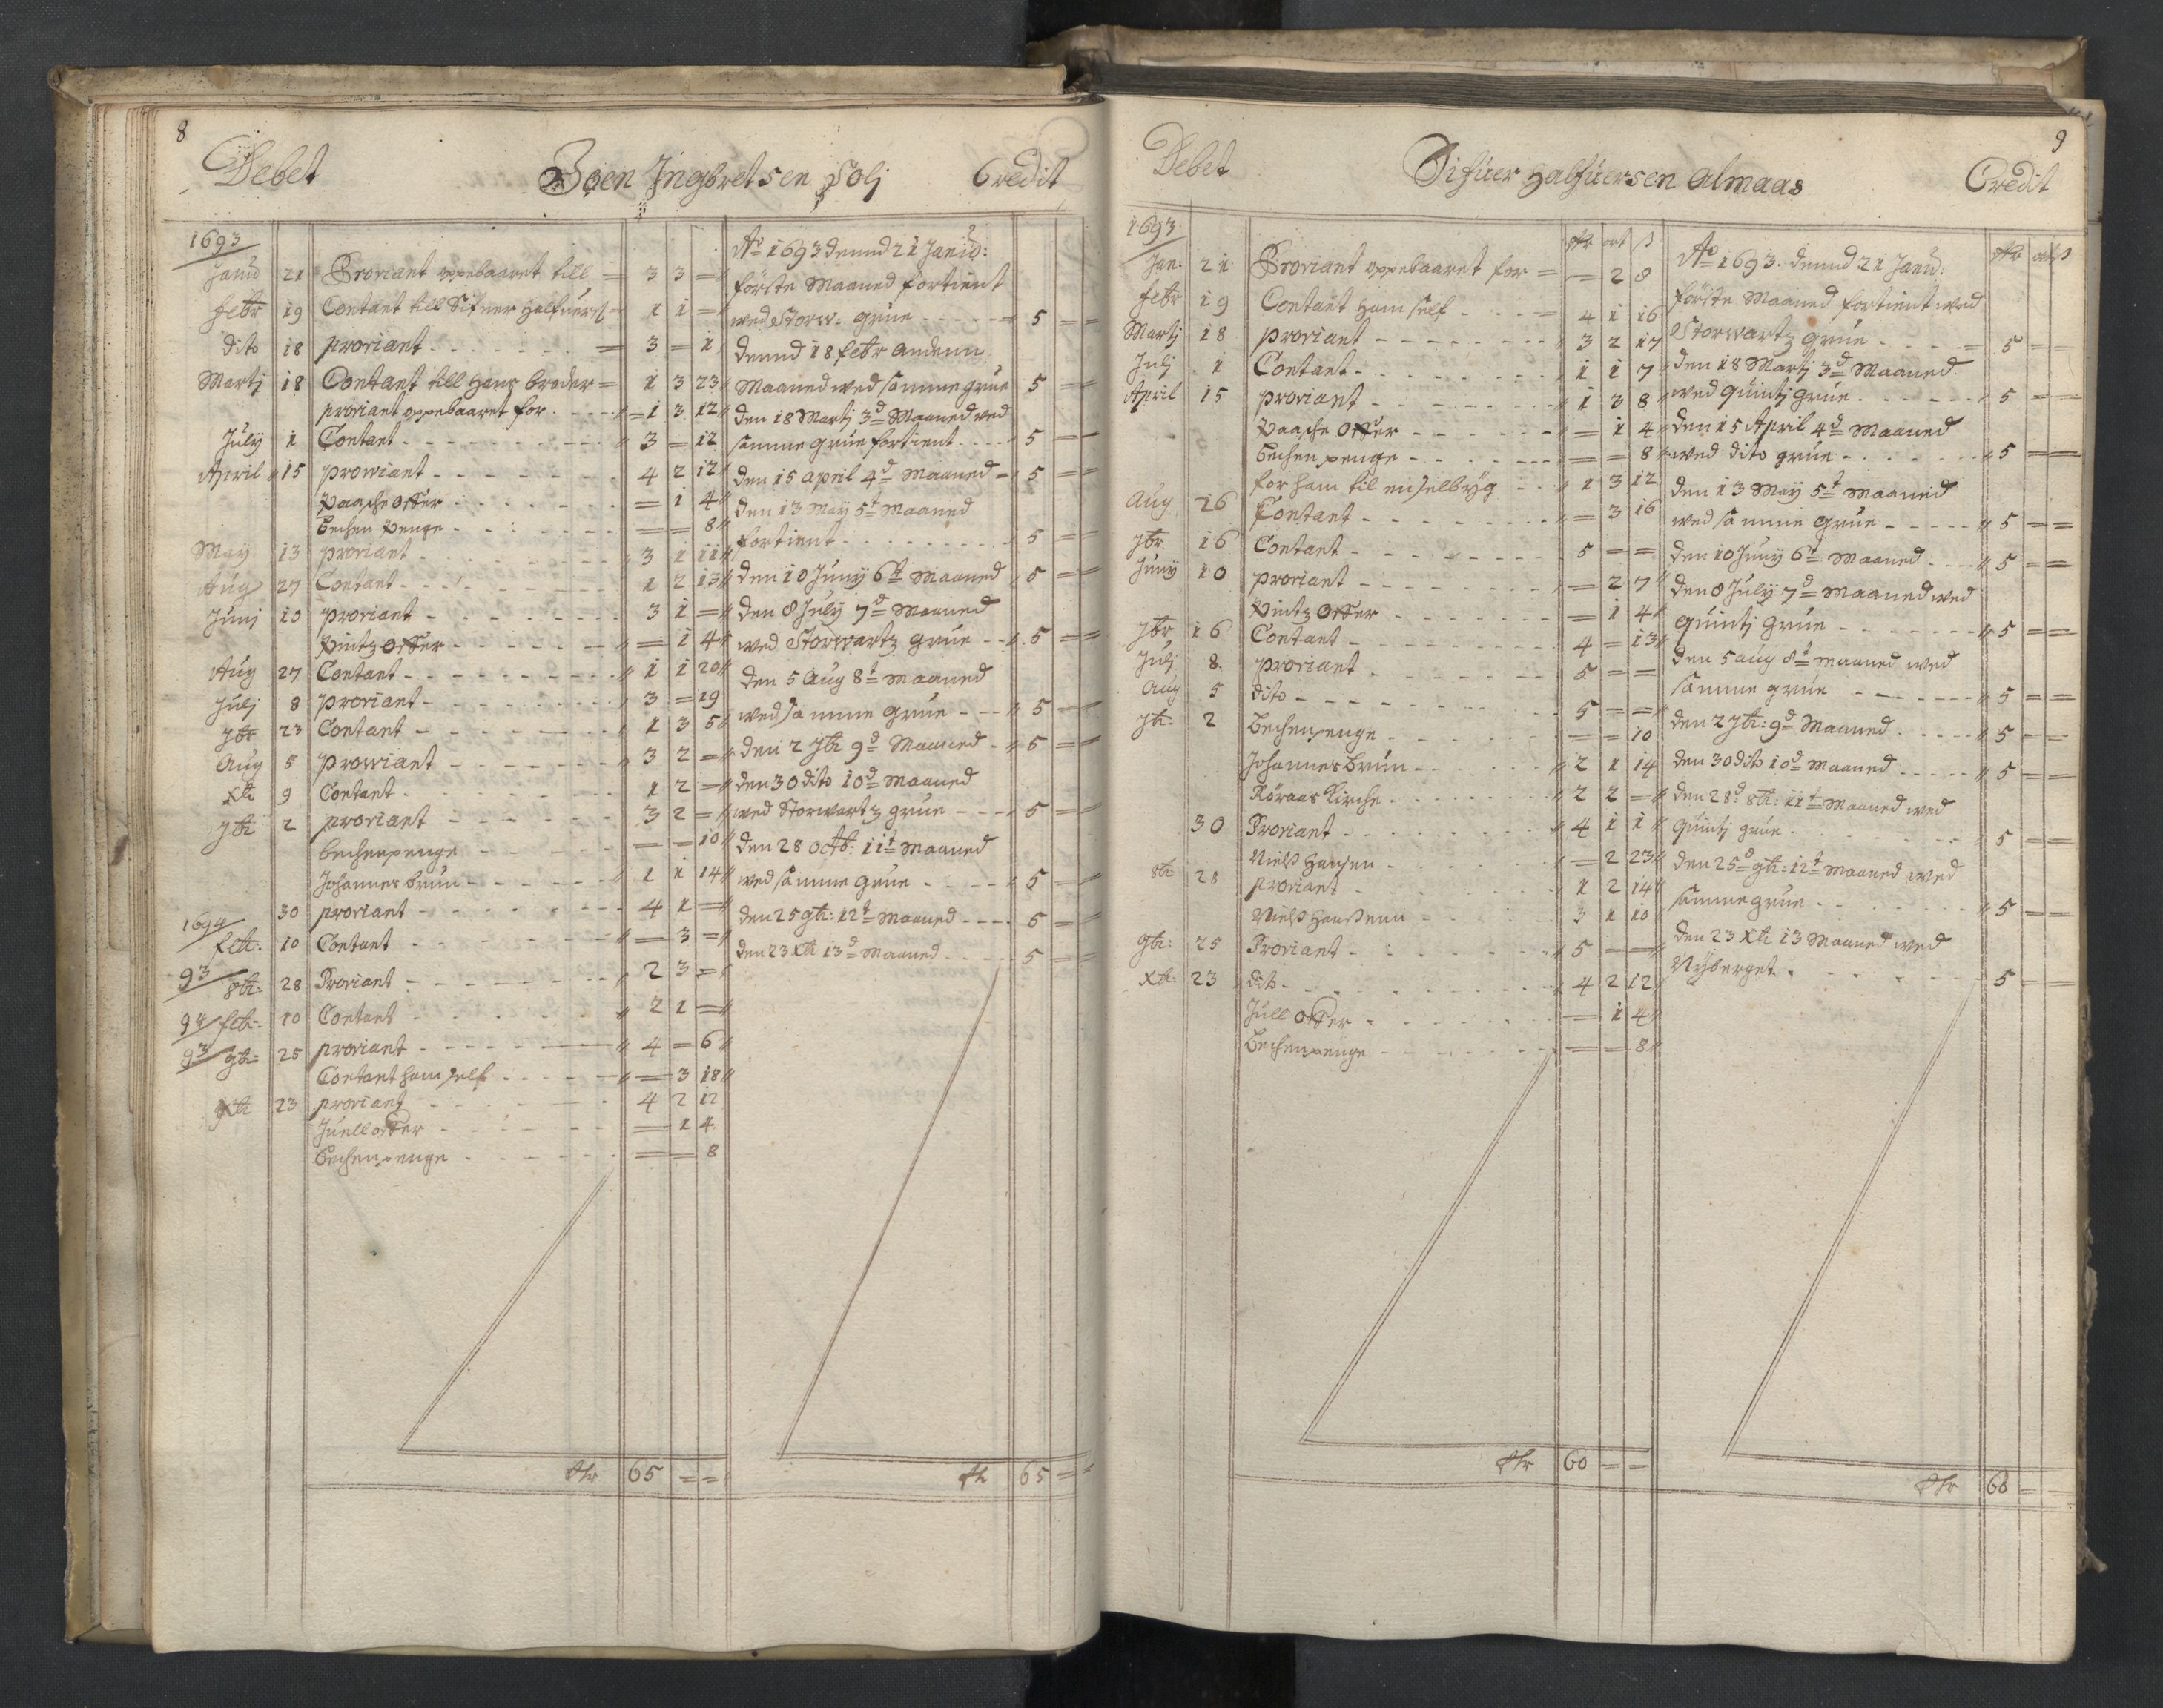 8
Debet Boen Ingbretsen Solj Credit
1693
Janu 21 Proviant oppebaaret till = 3 3 =
febr 19 Contant till Sifuer Halfuers 1 1 =
dito 18 proviant = 3 = 1
Martj 18 Contant till Hans broder = 1 3 23
proviant oppebaaret for 1 3 12
July 1 Contant 3 = 12
April 15 prowiant 4 2 12
Paasche offer = 1 4
Bechen Penge = = 8
May 13 proviant 3 1 11
Aug 27 Contant 1 2 13
Junj 10 proviant 3 1 =
Pintz offer = 1 4
Aug 27 Contant 1 1 20
Julj 8 proviant 3 = 19
7br 23 Contant 1 3 5
Aug 5 prowiant 3 2 =
Xbr 9 Contant 1 2 =
7br 2 proviant 3 2 =
bechenpenge = = 10
Johannes brun 1 1 14
30 proviant 4 1 =
1694
febr: 10 Contant = 3 =
93 8br: 28 Proviant 2 3 =
94 febr: 10 Contant 2 1 =
93 9br: 25 proviant 4 = 6
Contant ham self = 3 18
Xbr 23 proviant 4 2 12
Juell offer = 1 4
bechenpenge = = 8
Rdr 65 = =
Ao 1693 dennd 21 Janu:
förste Maaned fortient
wed Storw: grue 5 = =
dennd 18 febr andenn
Maaned wed samme grue 5 = =
den 18 Martj 3d Maaned wed
samme grue fortient 5 = =
den 15 april 4d Maaned 5 = =
den 13 May 5t Maaned
fortient 5 = =
den 10 Juny 6t Maaned 5 = =
den 8 July 7d Maaned
wed Storwartz grue 5 = =
den 5 Aug 8t Maaned
wed samme grue 5 = =
den 2 7br 9d Maaned 5
den 30 dito 10d Maaned
wed Storwartz grue 5 = =
den 28 octb: 11t Maaned
wed samme grue 5 = =
den 25 9br: 12t Maaned 5 = =
den 23 Xbr 13d Maaned 5 = =
Rdr 65 = =
9
Debet Sifuer Halfuersen Almaas Credit
1693
Rdr ort ß
Jan: 21 Proviant oppebaaret for = = 2 8
febr 19 Contant ham self 4 1 16
Martj 18 proviant 3 2 17
Julj 1 Contant 1 1 7
April 15 proviant 1 3 8
Paasche offer = 1 4
bechenpenge = = 8
for ham til en selbyg 1 3 12
Aug 26 Contant = 3 16
7br 16 Contant 5 = =
Juny 10 proviant = 2 7
Pintz offer = 1 4
7br 16 Contant 4 = 13
Julj 8 proviant 5 = =
Aug 5 dito 5 = =
7br: 2 Bechenpenge = = 10
Johannes brun 2 1 14
Röraas Kirche 2 2 =
30 Proviant 4 1 1
Niels Hansen = 2 23
8br: 28 proviant 1 2 14
Niels Hanßenn 3 1 10
9br: 25 Proviant 5 = =
Xbr: 23 dito 4 2 12
Jull offer = 1 4
Bechenpenge = = 8
Rdr 60 = =
Rdr ort ß
Ao 1693. dennd 21 Janu:
förste Maaned fortient wed
Storwartz grue 5 = =
den 18 Martj 3d Maaned
wed quintj grue 5 = =
den 15 April 4d Maaned
wed dito grue 5 = =
den 13 May 5t Maaned
wed samme grue 5 = =
den 10 Juny 6t Maaned 5 = =
den 8 July 7d Maaned wed
quintj grue 5 = =
den 5 aug 8t maaned wed
samme grue 5 = =
den 2 7br: 9d Maaned 5 = =
den 30 dito 10d Maaned 5 = =
den 28d 8br: 11t Maaned wed
quintj grue 5 = =
den 25d 9br: 12t Maaned wed
samme grue 5 = =
den 23 Xbr 13 Maaned wed
Nyberget 5 = =
Rdr 60 = =